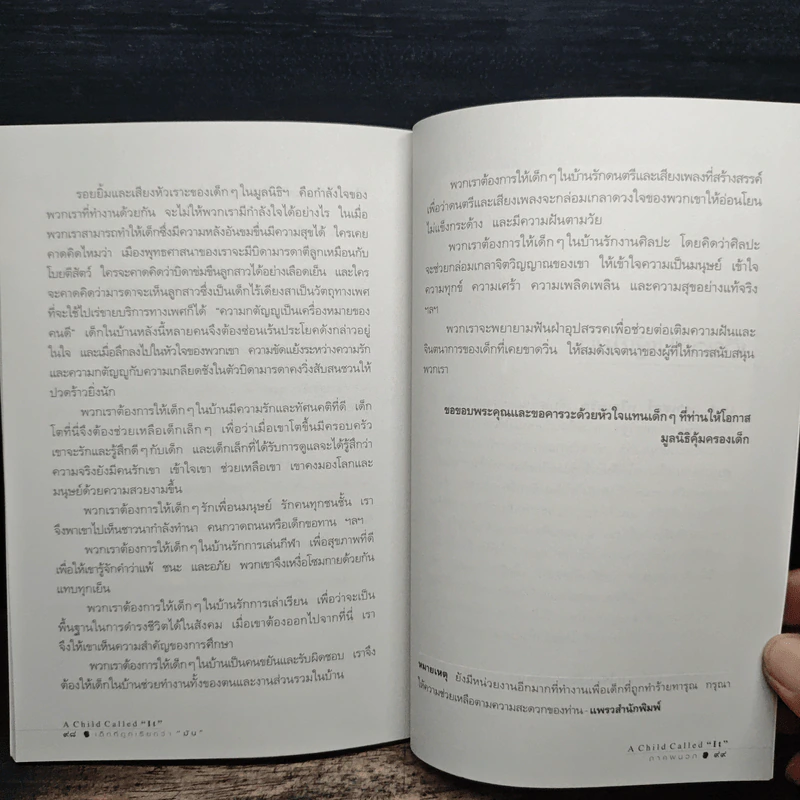 รอยยิ้มและเสียงหัวเราะของเด็กๆ ในมูลนิธิฯ คือกำลังใจของ
พวกเราที่ทำงานด้วยกัน จะไม่ให้พวกเรามีกำลังใจได้อย่างไร ในเมื่อ
พวกเราสามารถทำให้เด็กซึ่งมีความหลังอันขมขื่นมีความสุขได้ ใครเคย
คาดคิดไหมว่า เมืองพุทธศาสนาของเราจะมีบิดามารดาตีลูกเหมือนกับ
โบยตีสัตว์ ใครจะคาดคิดว่าบิดาข่มขืนลูกสาวได้อย่างเลือดเย็น และใคร
จะคาดคิดว่ามารดาจะเห็นลูกสาวซึ่งเป็นเด็กไร้เดียงสาเป็นวัตถุทางเพศ
ที่จะใช้ไปเร่ขายบริการทางเพศก็ได้ “ความกตัญญูเป็นเครื่องหมายของ
คนดี” เด็กในบ้านหลังนี้หลายคนจึงต้องซ่อนเร้นประโยคดังกล่าวอยู่
ในใจ และเมื่อลึกลงไปในหัวใจของพวกเขา ความขัดแย้งระหว่างความรัก
และความกตัญญูกับความเกลียดชังในตัวบิดามารดาคงวิ่งสับสนชวนให้
ปวดร้าวยิ่งนัก
พวกเราต้องการให้เด็กๆ ในบ้านมีความรักและทัศนคติที่ดี เด็ก
โตที่นี่จึงต้องช่วยเหลือเด็กเล็กๆ เพื่อว่าเมื่อเขาโตขึ้นมีครอบครัว
เขาจะรักและรู้สึกดีๆ กับเด็ก และเด็กเล็กที่ได้รับการดูแลจะได้รู้สึกว่า
ความจริงยังมีคนรักเขา เข้าใจเขา ช่วยเหลือเขา เขาคงมองโลกและ
มนุษย์ด้วยความสวยงามขึ้น
พวกเราต้องการให้เด็กๆ รักเพื่อนมนุษย์ รักคนทุกชนชั้น เรา
จึงพาเขาไปเห็นชาวนากำลังทำนา คนกวาดถนนหรือเด็กขอทาน ฯลฯ
พวกเราต้องการให้เด็กๆ ในบ้านรักการเล่นกีฬา เพื่อสุขภาพที่ดี
เพื่อให้เขารู้จักคำว่าแพ้ ชนะ และอภัย พวกเขาจึงเหงื่อโซมกายด้วยกัน
แทบทุกเย็น
พวกเราต้องการให้เด็กๆ ในบ้านรักการเล่าเรียน เพื่อว่าจะเป็น
พื้นฐานในการดำรงชีวิตได้ในสังคม เมื่อเขาต้องออกไปจากที่นี่ เรา
จึงให้เขาเห็นความสำคัญของการศึกษา
พวกเราต้องการให้เด็กๆ ในบ้านเป็นคนขยันและรับผิดชอบ เราจึง
ต้องให้เด็กในบ้านช่วยทำงานทั้งของตนและงานส่วนรวมในบ้าน
A Child Called “It”
๙๘ เด็กที่ถูกเรียกว่า “มัน”
พวกเราต้องการให้เด็กๆ ในบ้านรักดนตรีและเสียงเพลงที่สร้างสรรค์
เพื่อว่าดนตรีและเสียงเพลงจะกล่อมเกลาดวงใจของพวกเขาให้อ่อนโยน
ไม่แข็งกระด้าง และมีความฝันตามวัย
พวกเราต้องการให้เด็กๆ ในบ้านรักงานศิลปะ โดยคิดว่าศิลปะ
จะช่วยกล่อมเกลาจิตวิญญาณของเขา ให้เข้าใจความเป็นมนุษย์ เข้าใจ
ความทุกข์ ความเศร้า ความเพลิดเพลิน และความสุขอย่างแท้จริง
ฯลฯ
พวกเราจะพยายามฟันฝ่าอุปสรรคเพื่อช่วยต่อเติมความฝันและ
จินตนาการของเด็กที่เคยขาดวิ่น ให้สมดังเจตนาของผู้ที่ให้การสนับสนุน
พวกเรา
ขอขอบพระคุณและขอคารวะด้วยหัวใจแทนเด็กๆ ที่ท่านให้โอกาส
มูลนิธิคุ้มครองเด็ก
หมายเหตุ ยังมีหน่วยงานอีกมากที่ทำงานเพื่อเด็กที่ถูกทำร้ายทารุณ กรุณา
ให้ความช่วยเหลือตามความสะดวกของท่าน - แพรวสำนักพิมพ์
A Child Called “It”
ภาคผนวก ๙๙